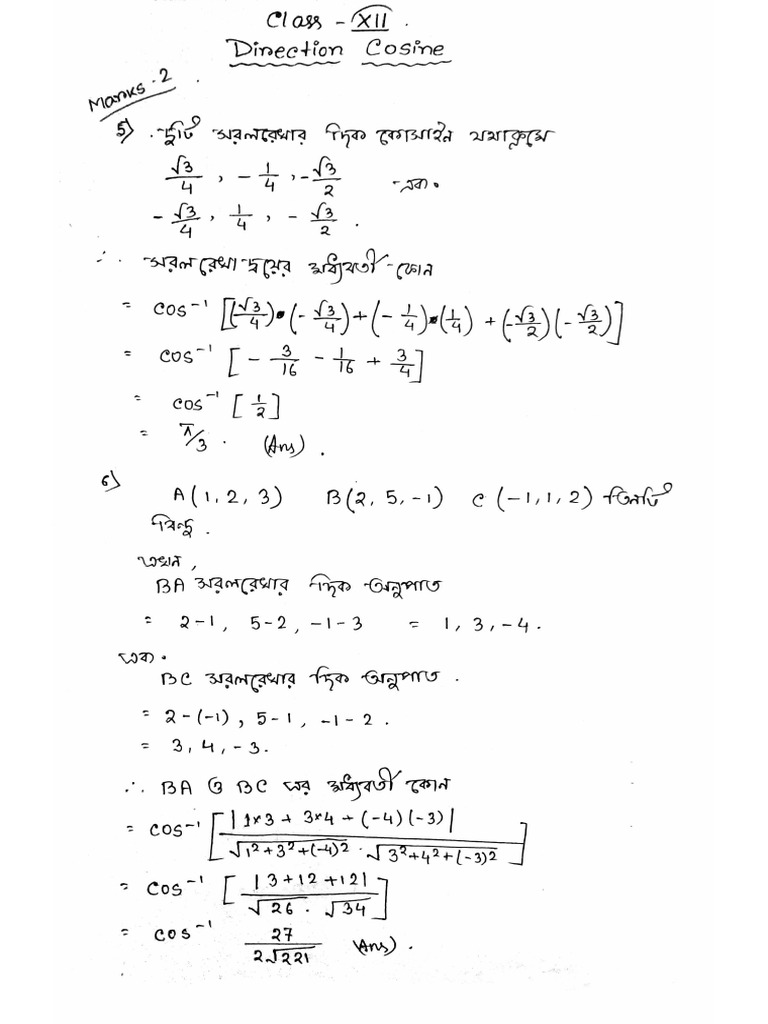 Class - XII .
Direction Cosine
Marks-2 .
5) . দুটি সরলরেখার দিক কোসাইন যথাক্রমে
√3/4 , - 1/4 , - √3/2 এবং
- √3/4 , 1/4 , - √3/2 .
∴ সরলরেখাদ্বয়ের মধ্যবর্তী কোন
= cos⁻¹ [(√3/4)·(- √3/4) + (- 1/4)·(1/4) + (- √3/2)(- √3/2)]
= cos⁻¹ [- 3/16 - 1/16 + 3/4]
= cos⁻¹ [1/2]
= π/3 . (Ans) .
6)
A(1, 2, 3) B(2, 5, -1) C(-1, 1, 2) তিনটি
বিন্দু .
তখন,
BA সরলরেখার দিক অনুপাত
= 2-1, 5-2, -1-3 = 1, 3, -4.
এবং
BC সরলরেখার দিক অনুপাত .
= 2-(-1), 5-1, -1-2 .
= 3, 4, -3.
∴ BA ও BC এর মধ্যবর্তী কোন
= cos⁻¹ [|1×3 + 3×4 + (-4)(-3)| / √1²+3²+(-4)² · √3²+4²+(-3)²]
= cos⁻¹ [|3+12+12| / √26 · √34]
= cos⁻¹ 27/2√221 (Ans) .